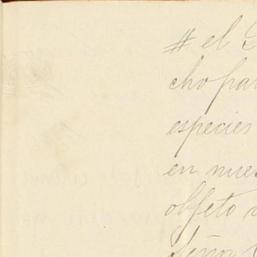 # el
cho par
especies
en nues
objeto
Señor